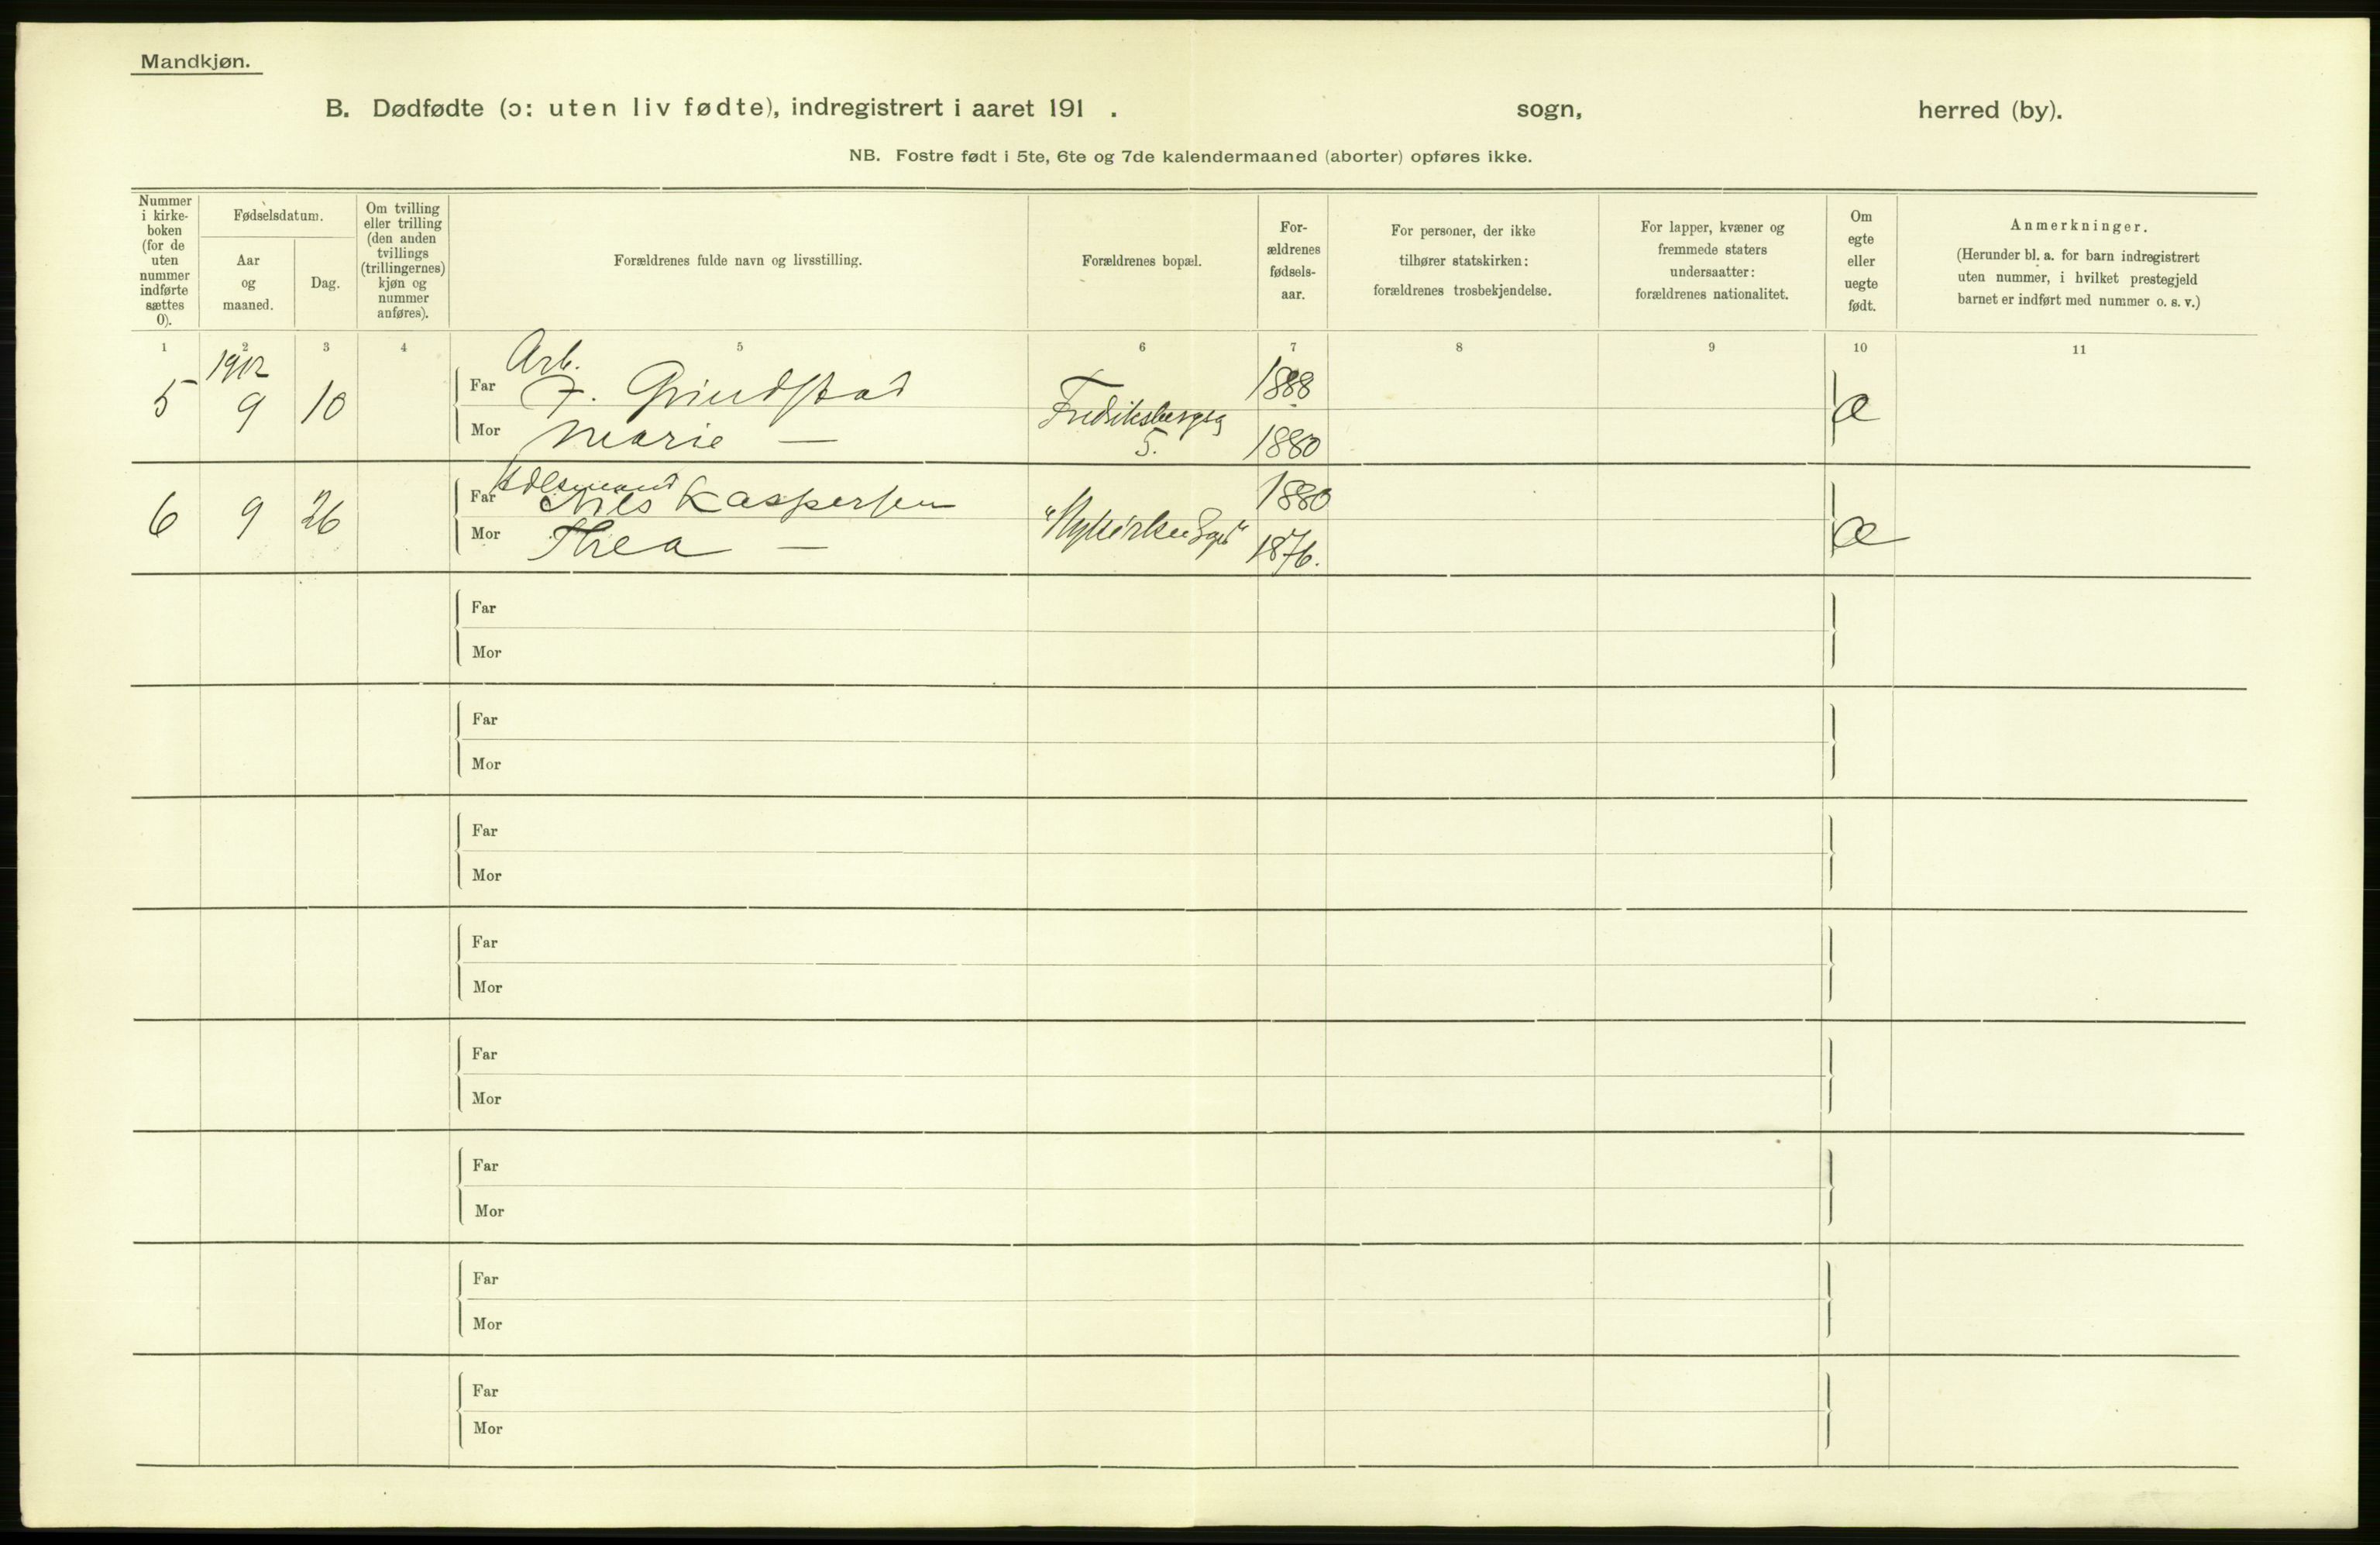 Mandkjøn.
B. Dødfødte (ɔ: uten liv fødte), indregistrert i aaret 191 . sogn, herred (by).
NB. Fostre født i 5te, 6te og 7de kalendermaaned (aborter) opføres ikke.
Nummer
i kirke-
boken
(for de
uten
nummer
indførte
sættes
0).
Fødselsdatum.
Aar
og
maaned.
Dag.
Om tvilling
eller trilling
(den anden
tvillings
(trillingernes)
kjøn og
nummer
anføres).
Forældrenes fulde navn og livsstilling.
Forældrenes bopæl.
For-
ældrenes
fødsels-
aar.
For personer, der ikke
tilhører statskirken:
forældrenes trosbekjendelse.
For lapper, kvæner og
fremmede staters
undersaatter:
forældrenes nationalitet.
Om
egte
eller
uegte
født.
Anmerkninger.
(Herunder bl. a. for barn indregistrert
uten nummer, i hvilket prestegjeld
barnet er indført med nummer o. s. v.)
1 2 3 4 5 6 7 8 9 10 11
1912
Arb.
5 9 10 Far Grindstad 1888 æ
Mor Marie — 5. 1880
6 9 26 Far Nils Kaspersen 1880 æ
Mor Thea — 1876.
Far
Mor
Far
Mor
Far
Mor
Far
Mor
Far
Mor
Far
Mor
Far
Mor
Far
Mor